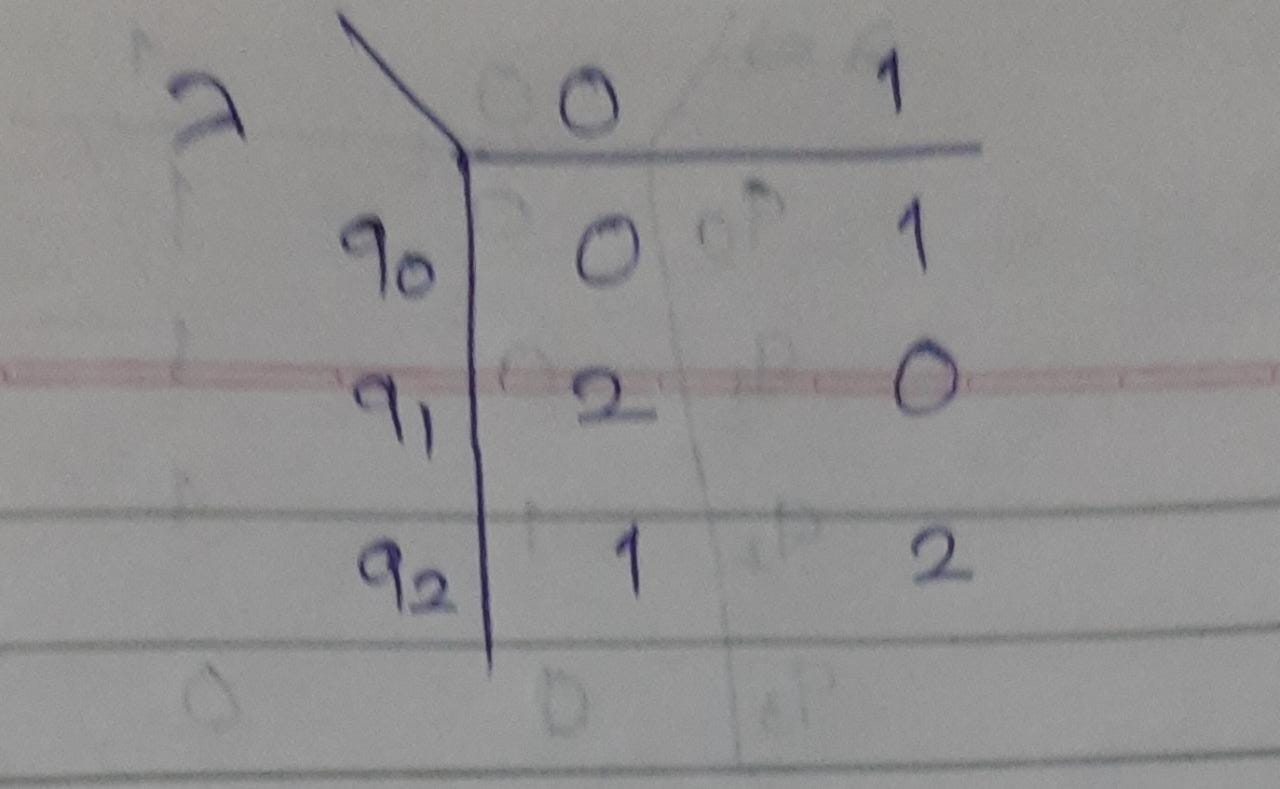 λ 0 1
q0 0 1
q1 2 0
q2 1 2